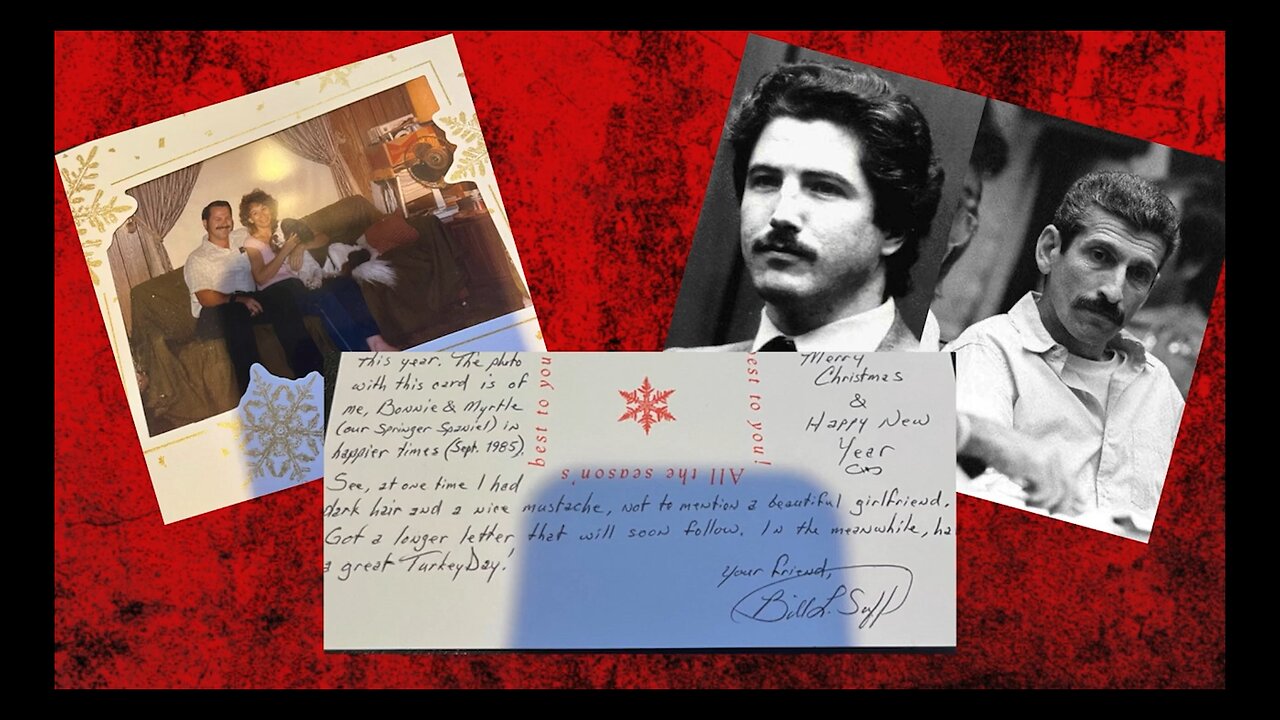 this year. The photo
with this card is of
me, Bonnie & Myrtle
(our Springer Spaniel) in
happier times (Sept. 1985).
See, at one time I had
dark hair and a nice mustache, not to mention a beautiful girlfriend.
Got a longer letter that will soon follow. In the meanwhile, ha
a great Turkey Day!
best to you
All the season's
est to you!
Merry
Christmas
&
Happy New
Year
Your friend,
Bill L. Suff